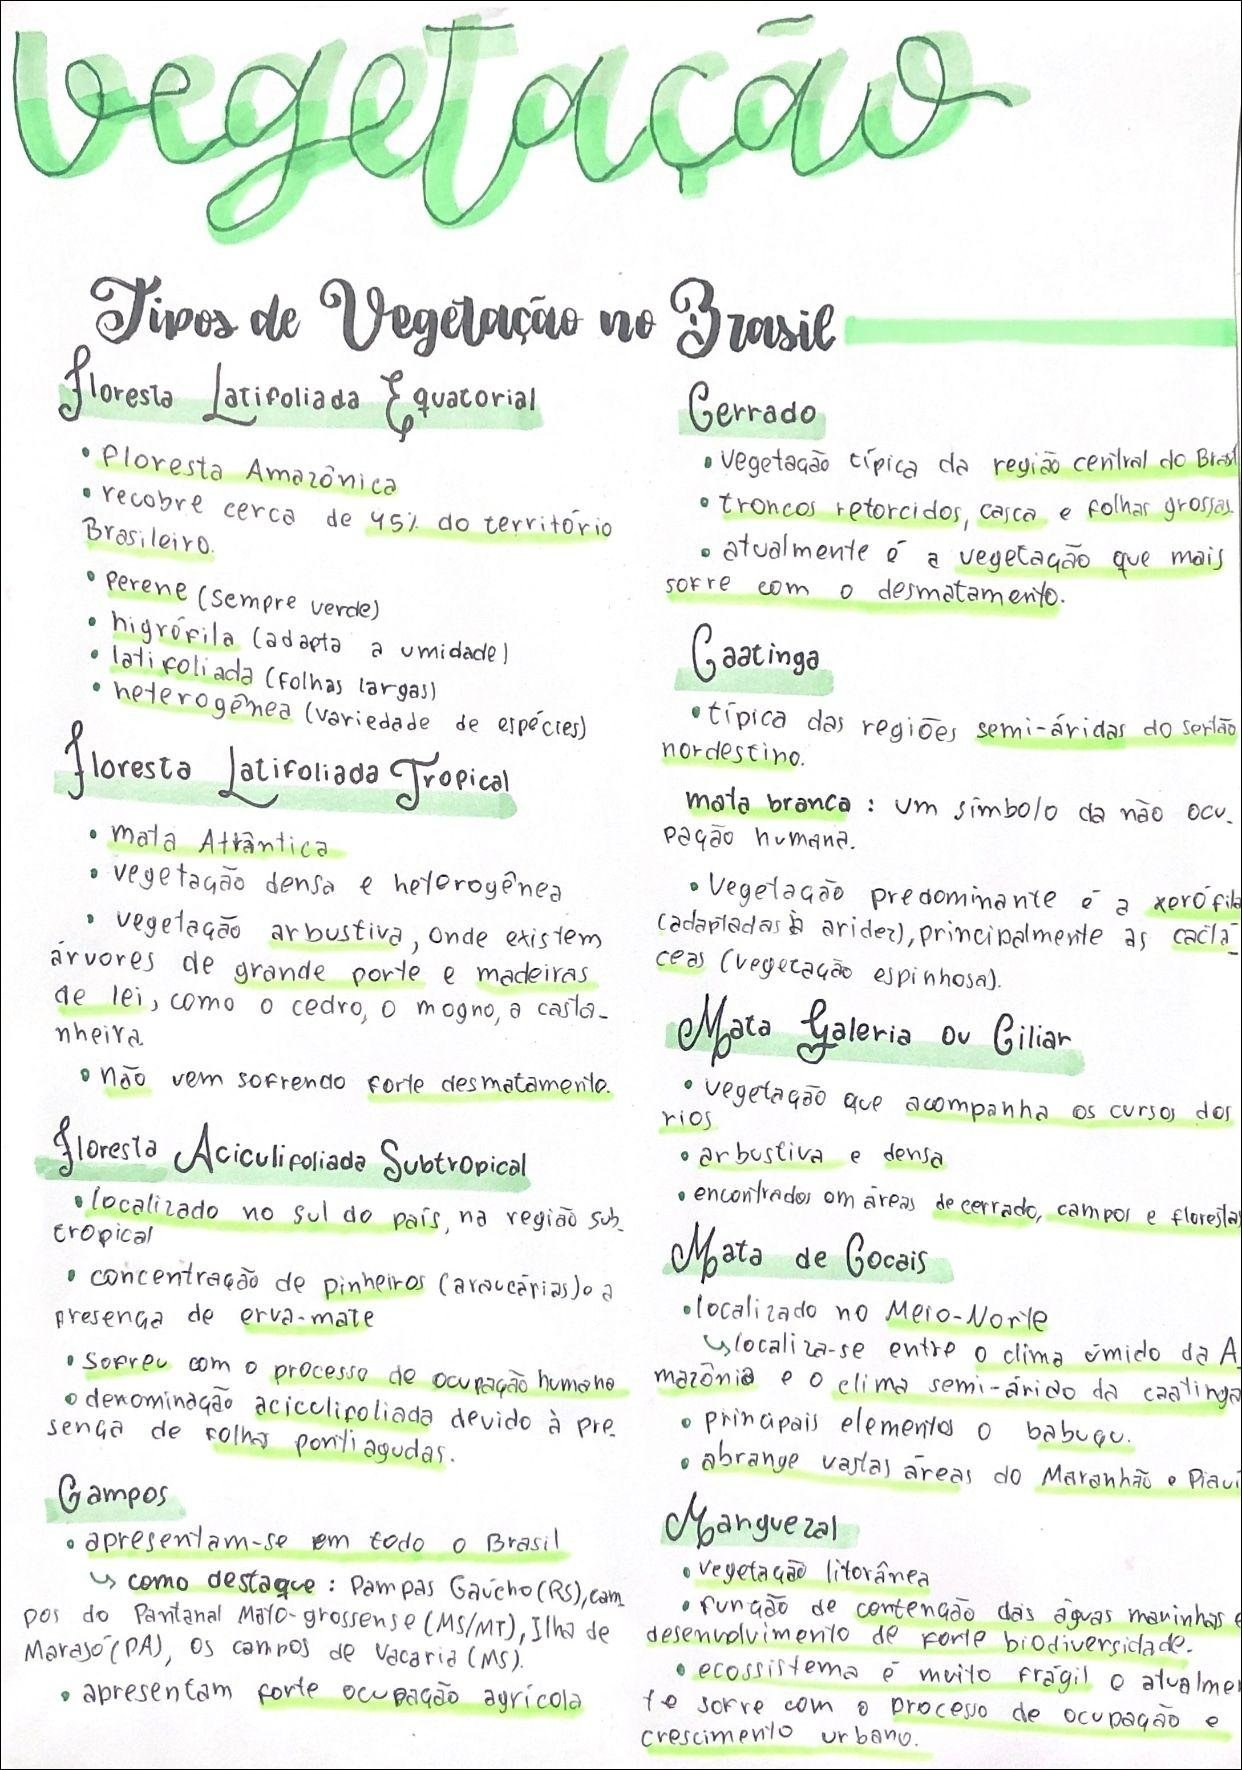 vegetação
Tipos de Vegetação no Brasil
Floresta Latifoliada Equatorial
• Floresta Amazônica
• recobre cerca de 45% do território
Brasileiro.
• perene (sempre verde)
• higrófila (adapta a umidade)
• latifoliada (folhas largas)
• heterogênea (variedade de espécies)
Floresta Latifoliada Tropical
• mata Atlântica
• vegetação densa e heterogênea
• vegetação arbustiva, onde existem
árvores de grande porte e madeiras
de lei, como o cedro, o mogno, a casta-
nheira.
• não vem sofrendo forte desmatamento.
Floresta Aciculifoliada Subtropical
• localizado no sul do país, na região sub-
tropical
• concentração de pinheiros (araucárias) e a
presença de erva-mate
• Sofreu com o processo de ocupação humana
• denominação aciculifoliada devido à pre-
sença de folhas pontiagudas.
Campos
• apresentam-se em todo o Brasil
↳ como destaque: Pampas Gaúcho (RS), cam-
pos do Pantanal Mato-grossense (MS/MT), Ilha de
Marajó (PA), os campos de Vacaria (MS).
• apresentam forte ocupação agrícola
Cerrado
• vegetação típica da região central do Brasil
• troncos retorcidos, casca e folhas grossas
• atualmente é a vegetação que mais
sofre com o desmatamento.
Caatinga
• típica das regiões semi-áridas do sertão
nordestino.
mata branca: um símbolo da não ocu-
pação humana.
• Vegetação predominante é a xerófila
(adaptadas à aridez), principalmente as cactá-
ceas (vegetação espinhosa).
Mata Galeria ou Ciliar
• vegetação que acompanha os cursos dos
rios
• arbustiva e densa
• encontrados em áreas de cerrado, campos e florestas
Mata de Cocais
• localizado no Meio-Norte
↳ localiza-se entre o clima úmido da A-
mazônia e o clima semi-árido da caatinga
• principais elementos o babuçu.
• abrange vastas áreas do Maranhão e Piauí
Manguezal
• vegetação litorânea
• função de contenção das águas marinhas e
desenvolvimento de forte biodiversidade.
• ecossistema é muito frágil e atualmen
te sofre com o processo de ocupação e
crescimento urbano.